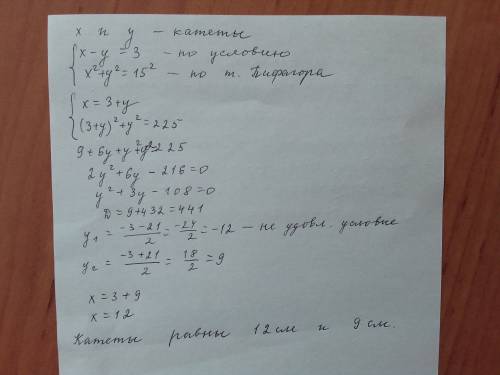 x и y - катеты
x - y = 3 - по условию
x² + y² = 15² - по т. Пифагора
x = 3 + y
(3 + y)² + y² = 225
9 + 6y + y² + y² = 225
2y² + 6y - 216 = 0
y² + 3y - 108 = 0
D = 9 + 432 = 441
y₁ = (-3 - 21)/2 = -24/2 = -12 - не удовл. условие
y₂ = (-3 + 21)/2 = 18/2 = 9
x = 3 + 9
x = 12
Катеты равны 12 см и 9 см.